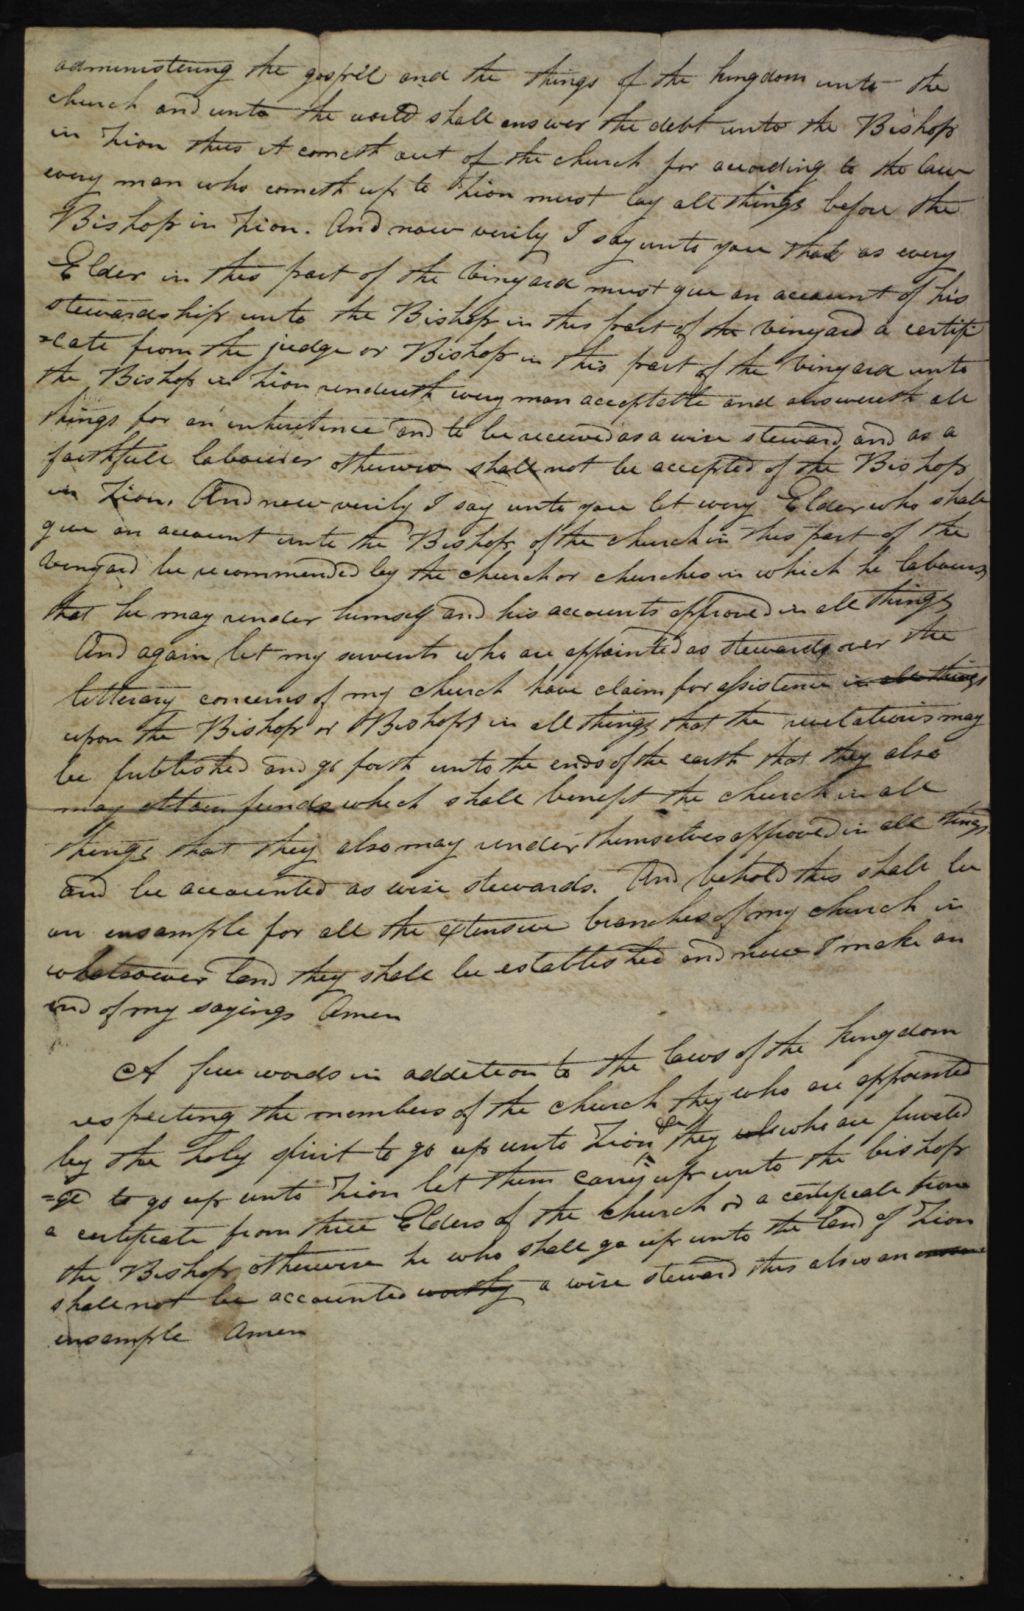 administering the gospel and the things of the kingdom unto the
church and unto the world shall answer the debt unto the Bishop
in Zion thus it cometh out of the church for acording to the law
every man who cometh up to Zion must lay all things before the
Bishop in Zion. And now verily I say unto you that as every
Elder in this part of the vinyard must give an account of his
stewardship unto the Bishop in this part of the vinyard a certifi
=cate from the judge or Bishop in this part of the vinyard unto
the Bishop in Zion rendereth every man acceptable and answereth all
things for an inheritence and to be received as a wise steward and as a
faithfull labourer otherwise shall not be accepted of the Bishop
in Zion. And now verily I say unto you let every Elder who shall
give an account unto the Bishop of the church in this part of the
vinyard be recommended by the church or churches in which he labours
that he may render himself and his accounts approved in all things
And again let my servents who are appointed as stewards over the
litterary concerns of my church have claim for assistence in all things
upon the Bishop or Bishops in all things that the revelations may
be published and go forth unto the ends of the earth that they also
may obtain funds which shall benefit the church in all
things that they also may render themselves approved in all things
and be accounted as wise stewards. And behold this shall be
an ensample for all the extensive branches of my church in
whatsoever land they shall be established and now I make an
end of my sayings Amen
A few words in addition to the laws of the kingdom
respecting the members of the church they who are appointed
by the holy spirit to go up unto Zion & they who are priveled
=ge to go up unto Zion let them carry up unto the bishop
a certificate from three Elders of the church or a certificate from
the Bishop otherwise he who shall go up unto the land of Zion
shall not be accounted worthy a wise steward this also is an
ensample Amen